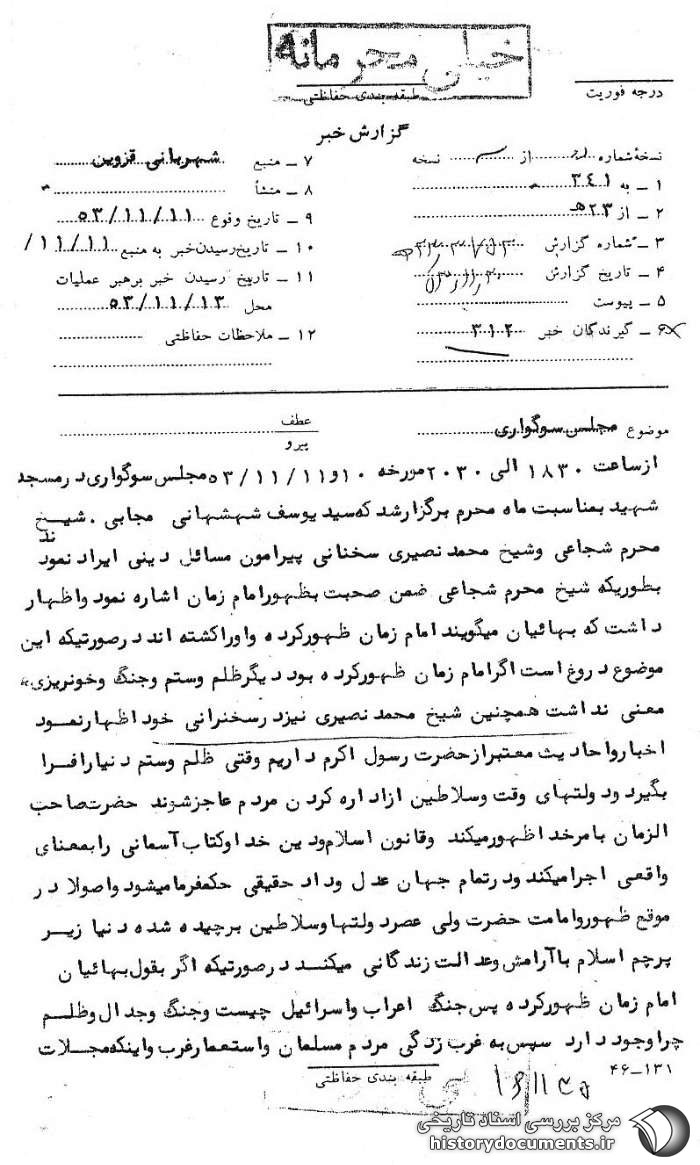 خیلی محرمانه
طبقه بندی حفاظتی
درجه فوریت
گزارش خبر
نسخهٔ شماره از نسخه
۱ – به ۳۴۱
۲ – از ۲۳هـ
۳ – شماره گزارش
۴ – تاریخ گزارش
۵ – پیوست
۶ – گیرندگان خبر ۳۱۲
۷ – منبع شهربانی قزوین
۸ – منشأ
۹ – تاریخ وقوع ۵۳/۱۱/۱۱
۱۰ – تاریخ رسیدن خبر به منبع ۱۱/۱۱/
۱۱ – تاریخ رسیدن خبر برهبر عملیات
محل ۵۳/۱۱/۱۳
۱۲ – ملاحظات حفاظتی
موضوع مجلس سوگواری
عطف
پیرو
از ساعت ۱۸۳۰ الی ۲۰۳۰ مورخه ۱۰ و ۵۳/۱۱/۱۱ مجلس سوگواری در مسجد
شهید بمناسبت ماه محرم برگزار شد که سید یوسف شهشهانی مجابی . شیخ
محرم شجاعی وشیخ محمد نصیری سخنانی پیرامون مسائل دینی ایراد نمودند
بطوریکه شیخ محرم شجاعی ضمن صحبت بظهور امام زمان اشاره نمود واظهار
داشت که بهائیان میگویند امام زمان ظهور کرده واورا کشته اند در صورتیکه این
موضوع دروغ است اگر امام زمان ظهور کرده بود دیگر ظلم وستم وجنگ وخونریزی
معنی نداشت همچنین شیخ محمد نصیری نیز در سخنرانی خود اظهار نمود
اخبار واحادیث معتبر از حضرت رسول اکرم داریم وقتی ظلم وستم دنیا را فرا
بگیرد ودولتهای وقت وسلاطین از اداره کردن مردم عاجز شوند حضرت صاحب
الزمان بامر خدا ظهور میکند وقانون اسلام ودین خدا وکتاب آسمانی را بمعنای
واقعی اجرا میکند ودر تمام جهان عدل وداد حقیقی حکمفرما میشود واصولا در
موقع ظهور وامامت حضرت ولی عصر دولتها وسلاطین برچیده شده دنیا زیر
پرچم اسلام با آرامش وعدالت زندگانی میکنند در صورتیکه اگر بقول بهائیان
امام زمان ظهور کرده پس جنگ اعراب واسرائیل چیست وجنگ وجدال وظلم
چرا وجود دارد سپس به غرب زدگی مردم مسلمان واستعمار غرب واینکه مجلات
۴۶-۱۳۱
طبقه بندی حفاظتی
مرکز بررسی اسناد تاریخی
historydocuments.ir